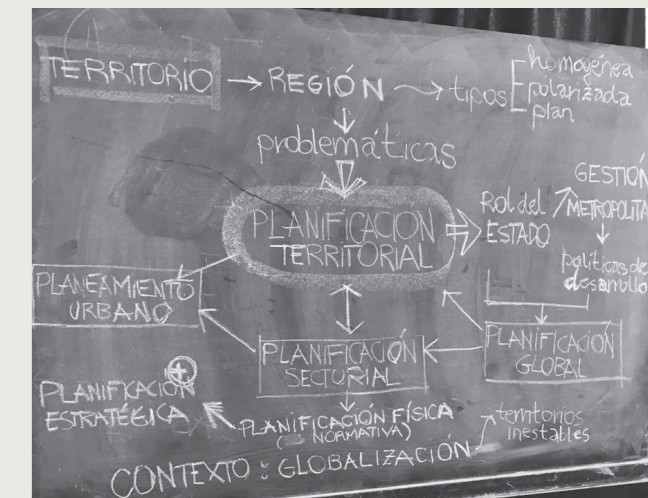 TERRITORIO → REGIÓN → tipos
homogénea
polarizada
plan
problemáticas
PLANIFICACIÓN
TERRITORIAL
Rol del
ESTADO
GESTIÓN
METROPOLITA
políticas de
desarrollo
PLANEAMIENTO
URBANO
PLANIFICACIÓN
SECTORIAL
PLANIFICACIÓN
GLOBAL
PLANIFICACIÓN
ESTRATÉGICA
PLANIFICACIÓN FÍSICA
(NORMATIVA)
territorios
inestables
CONTEXTO: GLOBALIZACIÓN